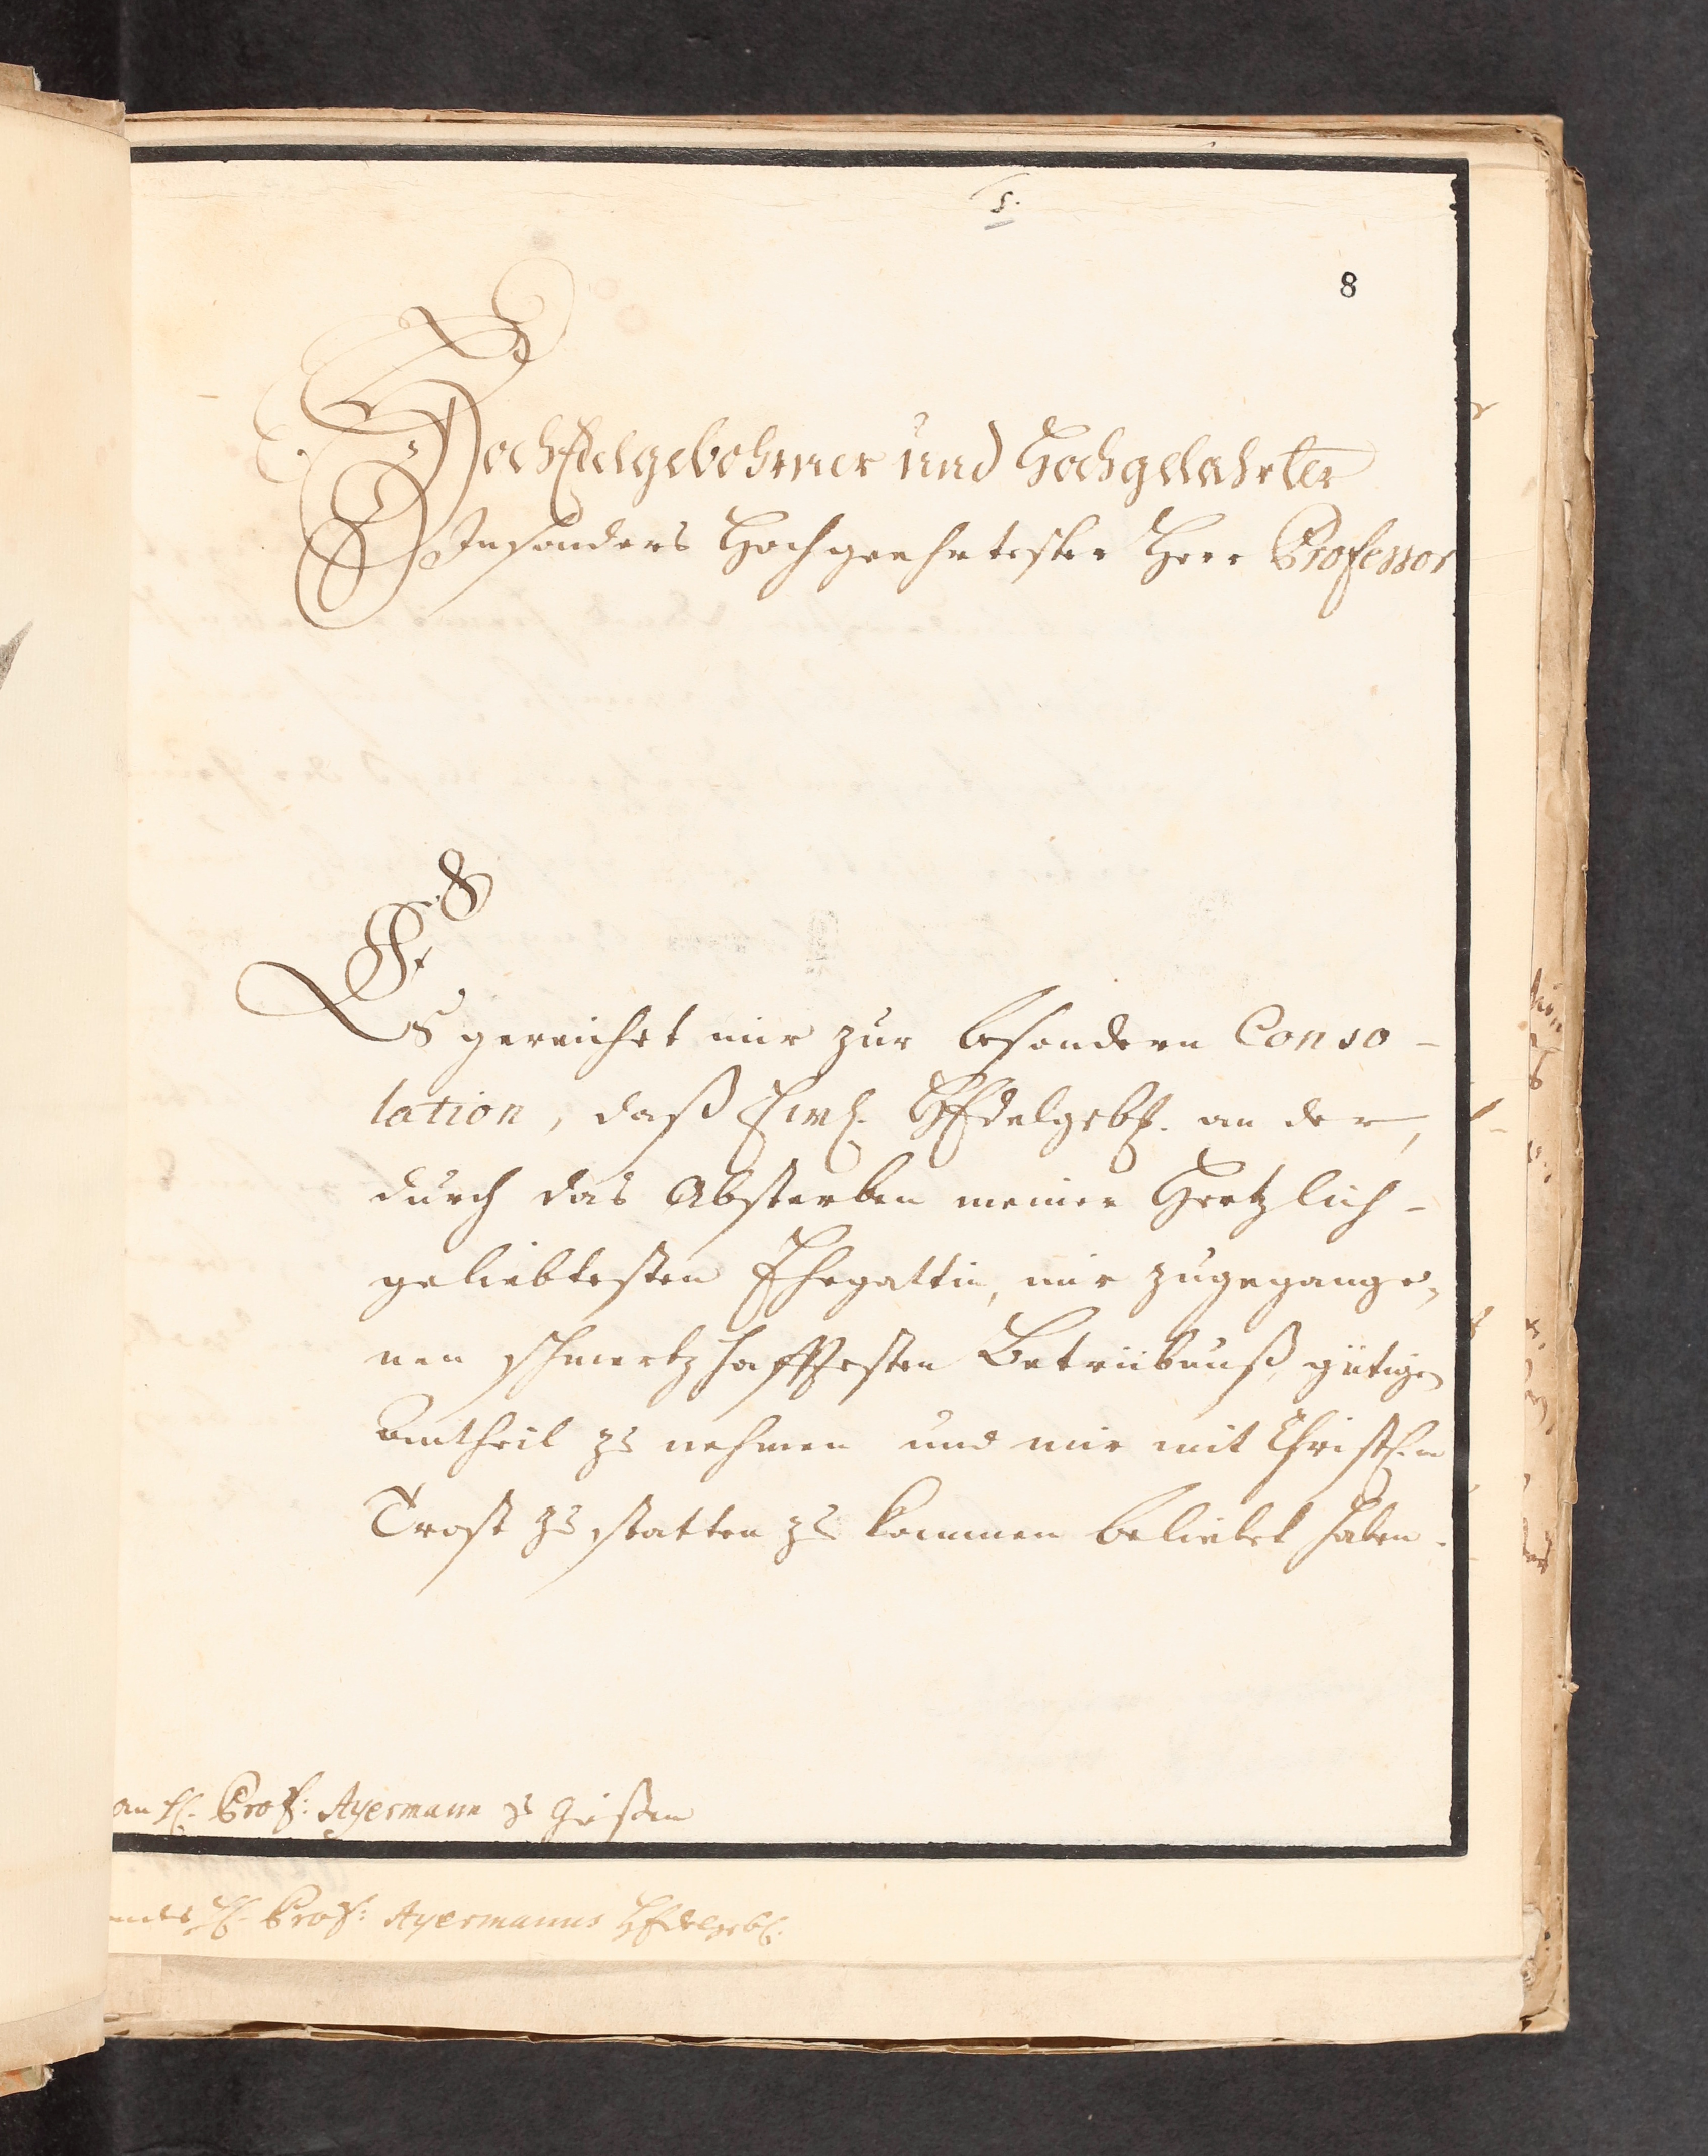 5.
8
HochEdelgebohrner und Hochgelahrter
Insonders Hochgeehrtester Herr Professor
Es gereichet mir zur besondern Conso-
lation, daß Ewl. HEdelgebl. an der,
durch das Absterben meiner Hertzlich-
geliebtesten Ehegattin, mir zugegange-
nen schmertzhafftesten Betrübnuß, gütigen
Antheil zu nehmen und mir mit Christl.m
Trost zu statten zu kommen beliebet haben.
an H. Prof: Ayermann zu Gießen
H. Prof: Ayermanns HEdelgebl.